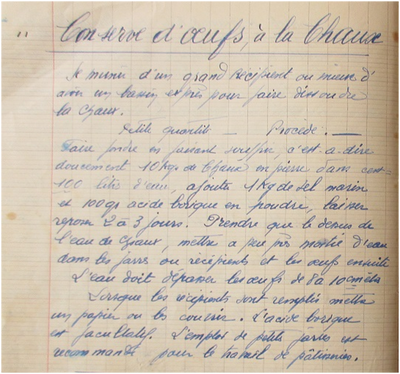 Conserve d'œufs, à la Chaux
Se munir d'un grand récipient ou mieux d'
avoir un bassin exprès pour faire dissoudre
la chaux.
Petite quantité — Procédé. —
Faire fondre en c'est-à-dire
doucement 10 Kgs de Chaux en pierre dans
100 litres d'eau, ajouter 1 Kg de sel marin
et 100 grs acide borique en poudre, laisser
reposer 2 à 3 jours. Prendre que le dessus de
l'eau de chaux, mettre à peu près moitié d'eau
dans les jarres ou récipients et les œufs ensuite
L'eau doit dépasser les œufs de 8 à 10 cmètres
Lorsque les récipients sont remplis mettre
un papier ou les couvrir. L'acide borique
est facultatif. L'emploi de petites jarres est
recommandé pour le travail de pâtisseries.